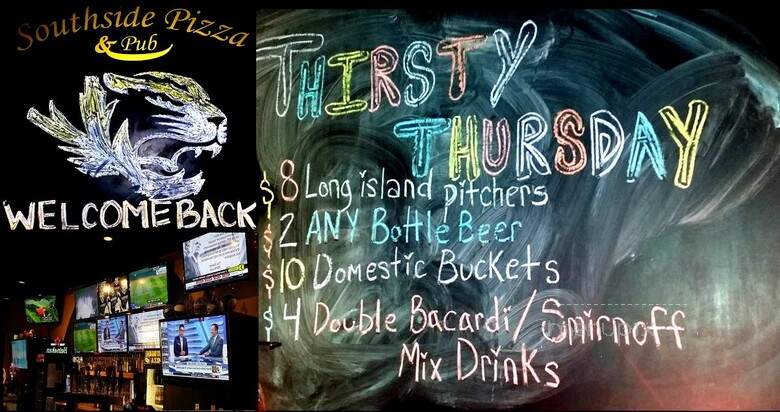 Southside Pizza
& Pub
WELCOME BACK
THIRSTY
THURSDAY
$8 Long island pitchers
$2 ANY Bottle Beer
$10 Domestic Buckets
$4 Double Bacardi/Smirnoff
Mix Drinks